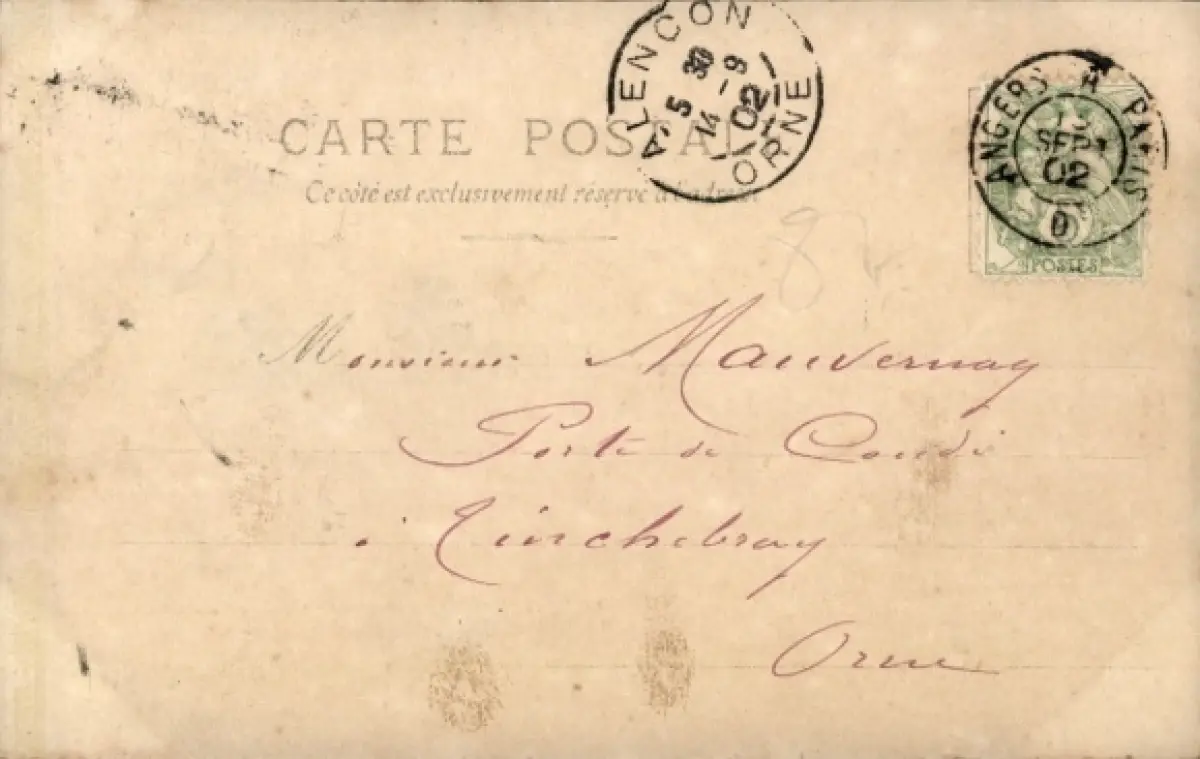 ALENCON
5 30
14 - 9
02
ORNE
ANGERS A PARIS
SEPT
02
D
POSTES
CARTE POSTALE
Ce côté est exclusivement réservé à l'adresse
Monsieur Mauvernay
Porte de Condé
à Tinchebray
Orne